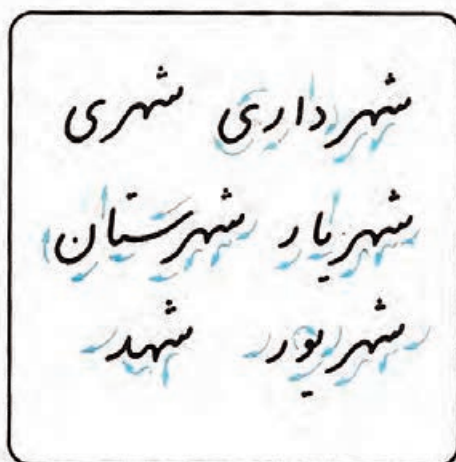 شهرداری شهری
شهریار شهرستان
شهریور شهد